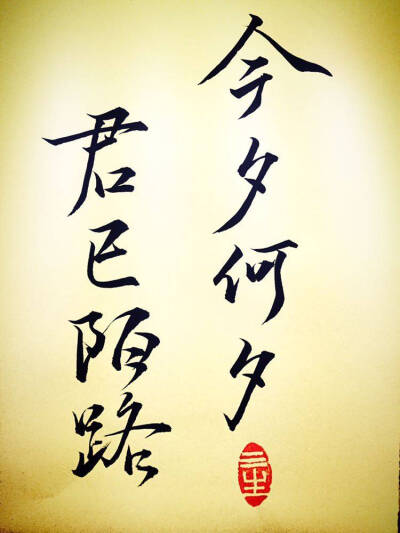 今夕何夕
君已陌路
三生